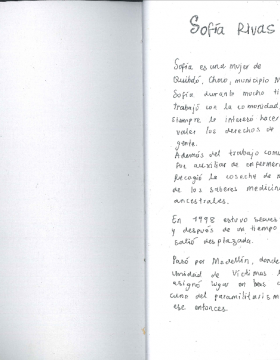 Sofía Rivas
Sofía es una mujer de
Quibdó, Choco, municipio M
Sofía durante mucho ti
trabajó con la comunidad,
siempre le interesó hacer
valer los derechos de
gente.
Además del trabajo com
fue auxiliar de enfermer
Recogió la cosecha de
de los saberes medicin
ancestrales.
En 1998 estuvo
y después de un tiempo
salió desplazada.
Pasó por Medellín, donde
Unidad de Víctimas
asignó lugar en
cuna del paramilitarism
ese entonces.